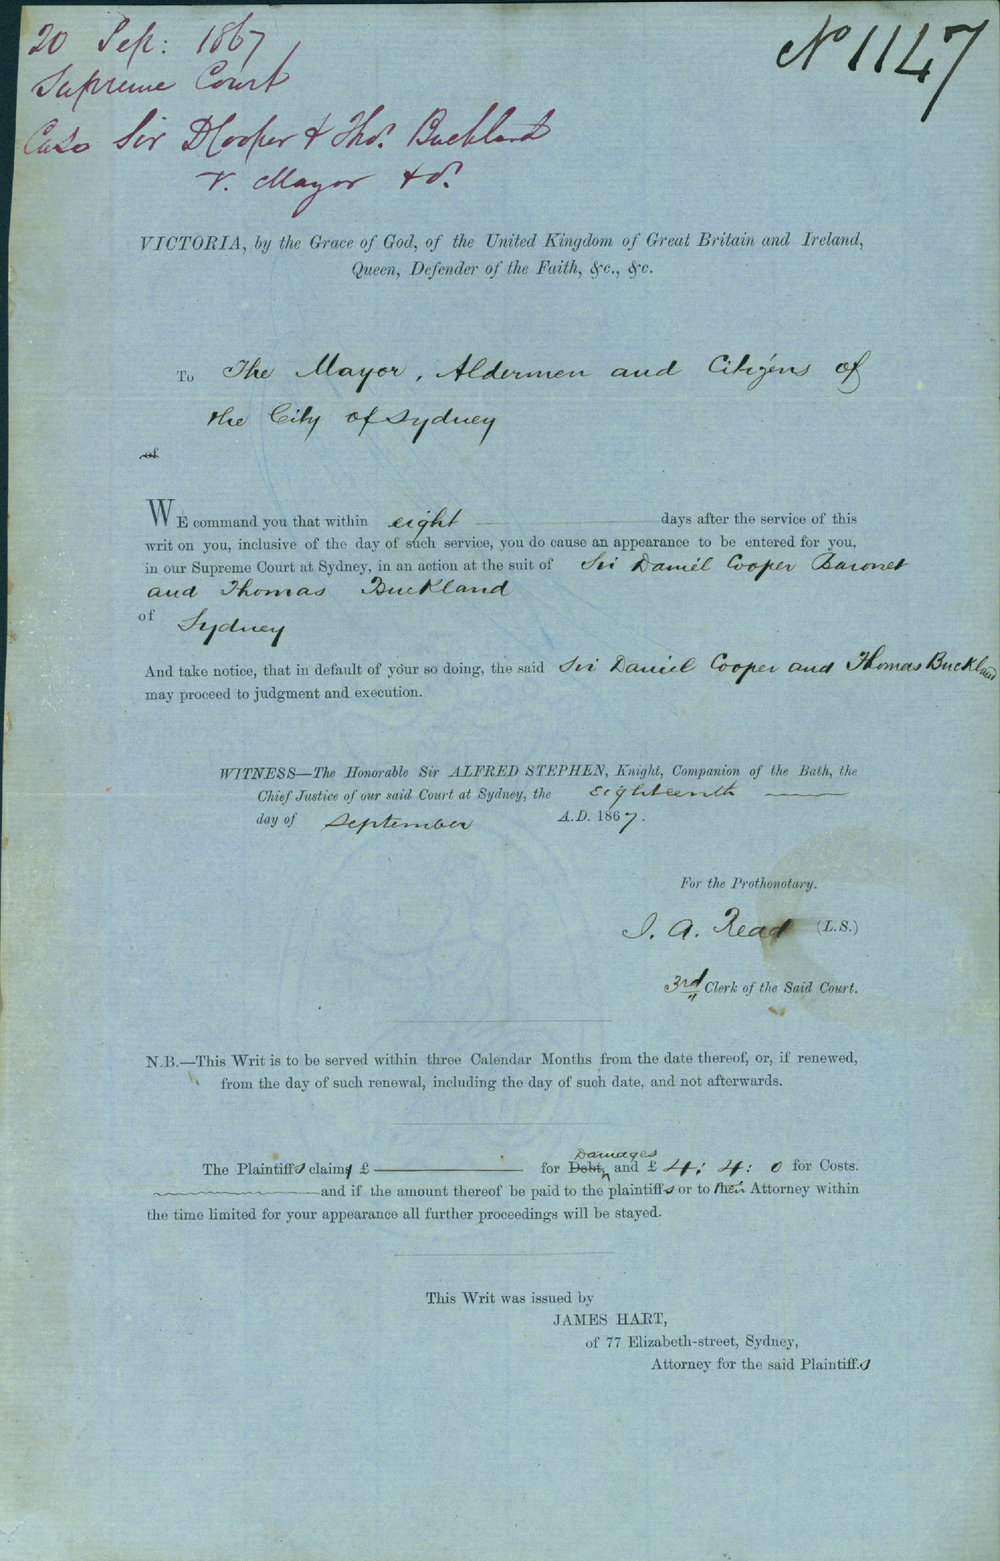 20 Sep: 1867
No 1147
Supreme Court
Case Sir D Cooper & Thos. Buckland
v. Mayor &c.
VICTORIA, by the Grace of God, of the United Kingdom of Great Britain and Ireland,
Queen, Defender of the Faith, &c., &c.
To The Mayor, Aldermen and Citizens of
the City of Sydney
of
WE command you that within eight days after the service of this
writ on you, inclusive of the day of such service, you do cause an appearance to be entered for you,
in our Supreme Court at Sydney, in an action at the suit of Sir Daniel Cooper Baronet
and Thomas Buckland
of Sydney
And take notice, that in default of your so doing, the said Sir Daniel Cooper and Thomas Buckland
may proceed to judgment and execution.
WITNESS—The Honorable Sir ALFRED STEPHEN, Knight, Companion of the Bath, the
Chief Justice of our said Court at Sydney, the Eighteenth
day of September A.D. 1867.
For the Prothonotary.
J. A. Read (L.S.)
3rd Clerk of the Said Court.
N.B.—This Writ is to be served within three Calendar Months from the date thereof, or, if renewed,
from the day of such renewal, including the day of such date, and not afterwards.
Damages
The Plaintiffs claim £ for Debt, and £ 4: 4: 0 for Costs.
and if the amount thereof be paid to the plaintiffs or to their Attorney within
the time limited for your appearance all further proceedings will be stayed.
This Writ was issued by
JAMES HART,
of 77 Elizabeth-street, Sydney,
Attorney for the said Plaintiffs